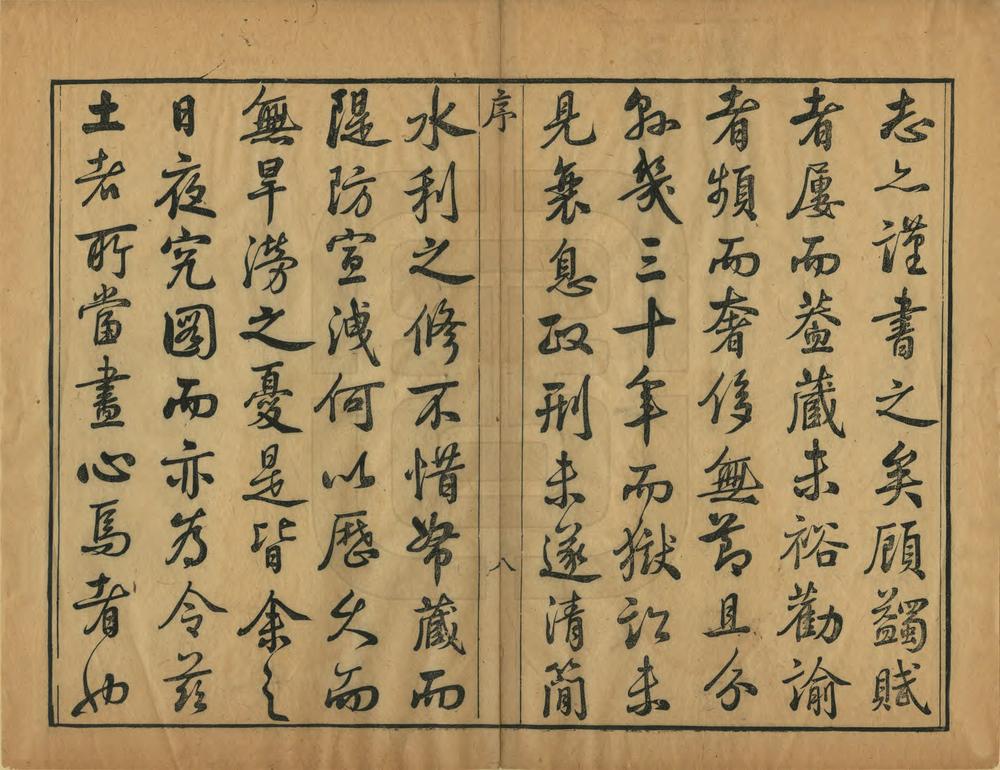 志亦謹書之矣顧蠲賦
者屢而蓋藏未裕勸諭
者頻而奢侈無節且分
縣幾三十年而獄訟未
見衰息政刑未遂清簡
序
八
水利之修不惜帑藏而
隄防宣洩何以歷久而
無旱澇之憂是皆余之
日夜究圖而亦為令茲
土者所當盡心焉者也